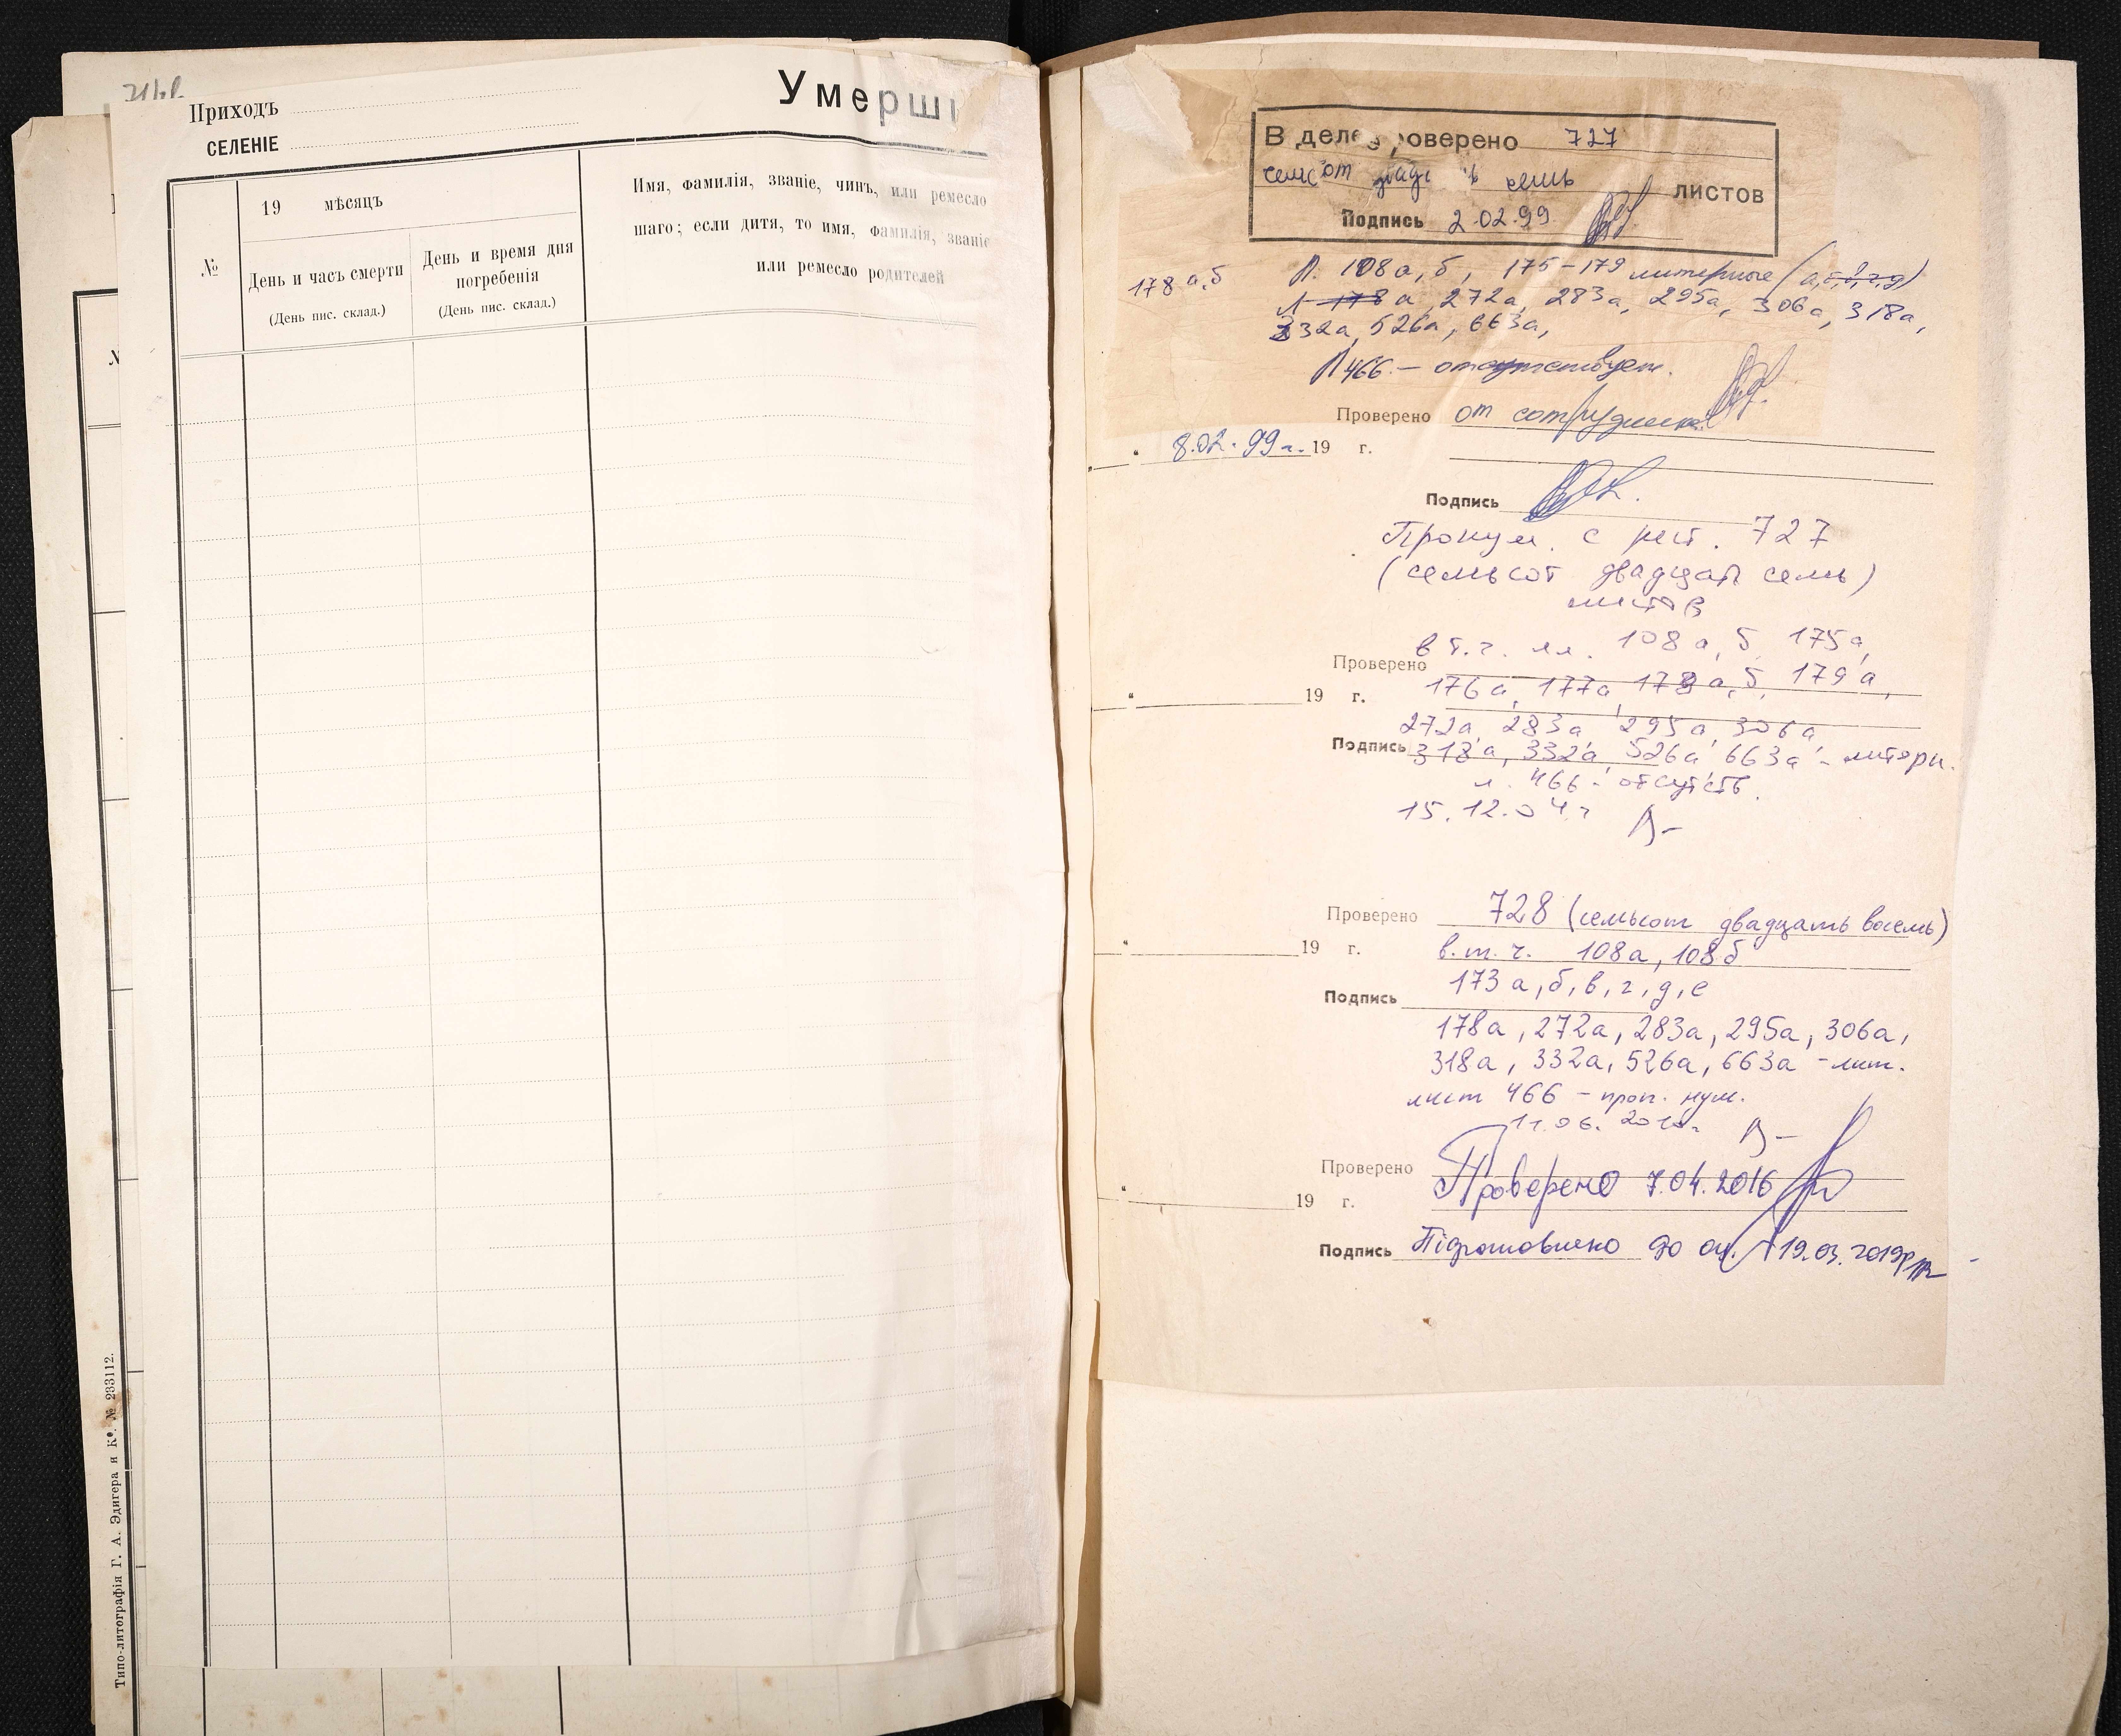 Приходъ
СЕЛЕНІЕ
Умерші
№
19 мѣсяцъ
День и часъ смерти
(День пис. склад.)
День и время дня
погребенія
(День пис. склад.)
Имя, фамилія, званіе, чинъ, или ремесло
шаго; если дитя, то имя, фамилія, званіе
или ремесло родителей
Типо-литографія Г. А. Эдигера и Ко. № 233112.
В деле роверено 727
семсот семь
ЛИСТОВ
Подпись 2.02.99.
178 а,б
Л. 108а, б, 175-179 литерные (а,б,в,г,д)
Л 178а, 272а, 283а, 295а, 306а, 318а,
332а, 526а, 663а,
Л 466 - отсутствует.
Проверено от сотрудника
" 8.02.99г. 19 г.
Подпись
Пронум. с рест. 727
(семьсот двадцат семь)
листов
в т.ч. лл. 108 а, б, 175а,
Проверено
176а, 177а, 178 а, б, 179а,
" 19 г.
272а, 283а, 295а, 306а,
Подпись 318а, 332а, 526а, 663а - литерн.
л. 466 - отсутств.
15.12.04 г
Проверено 728 (семьсот двадцать восемь)
" 19 г. в.т.ч. 108а, 108б
173 а, б, в, г, д, е
Подпись
178а, 272а, 283а, 295а, 306а,
318а, 332а, 526а, 663а - лит.
лист 466 - проп. нум.
11.06. 2010г.
Проверено Проверено 7.04.2016
" 19 г.
Подпись Підготовлено до оц. 19.03.2019р